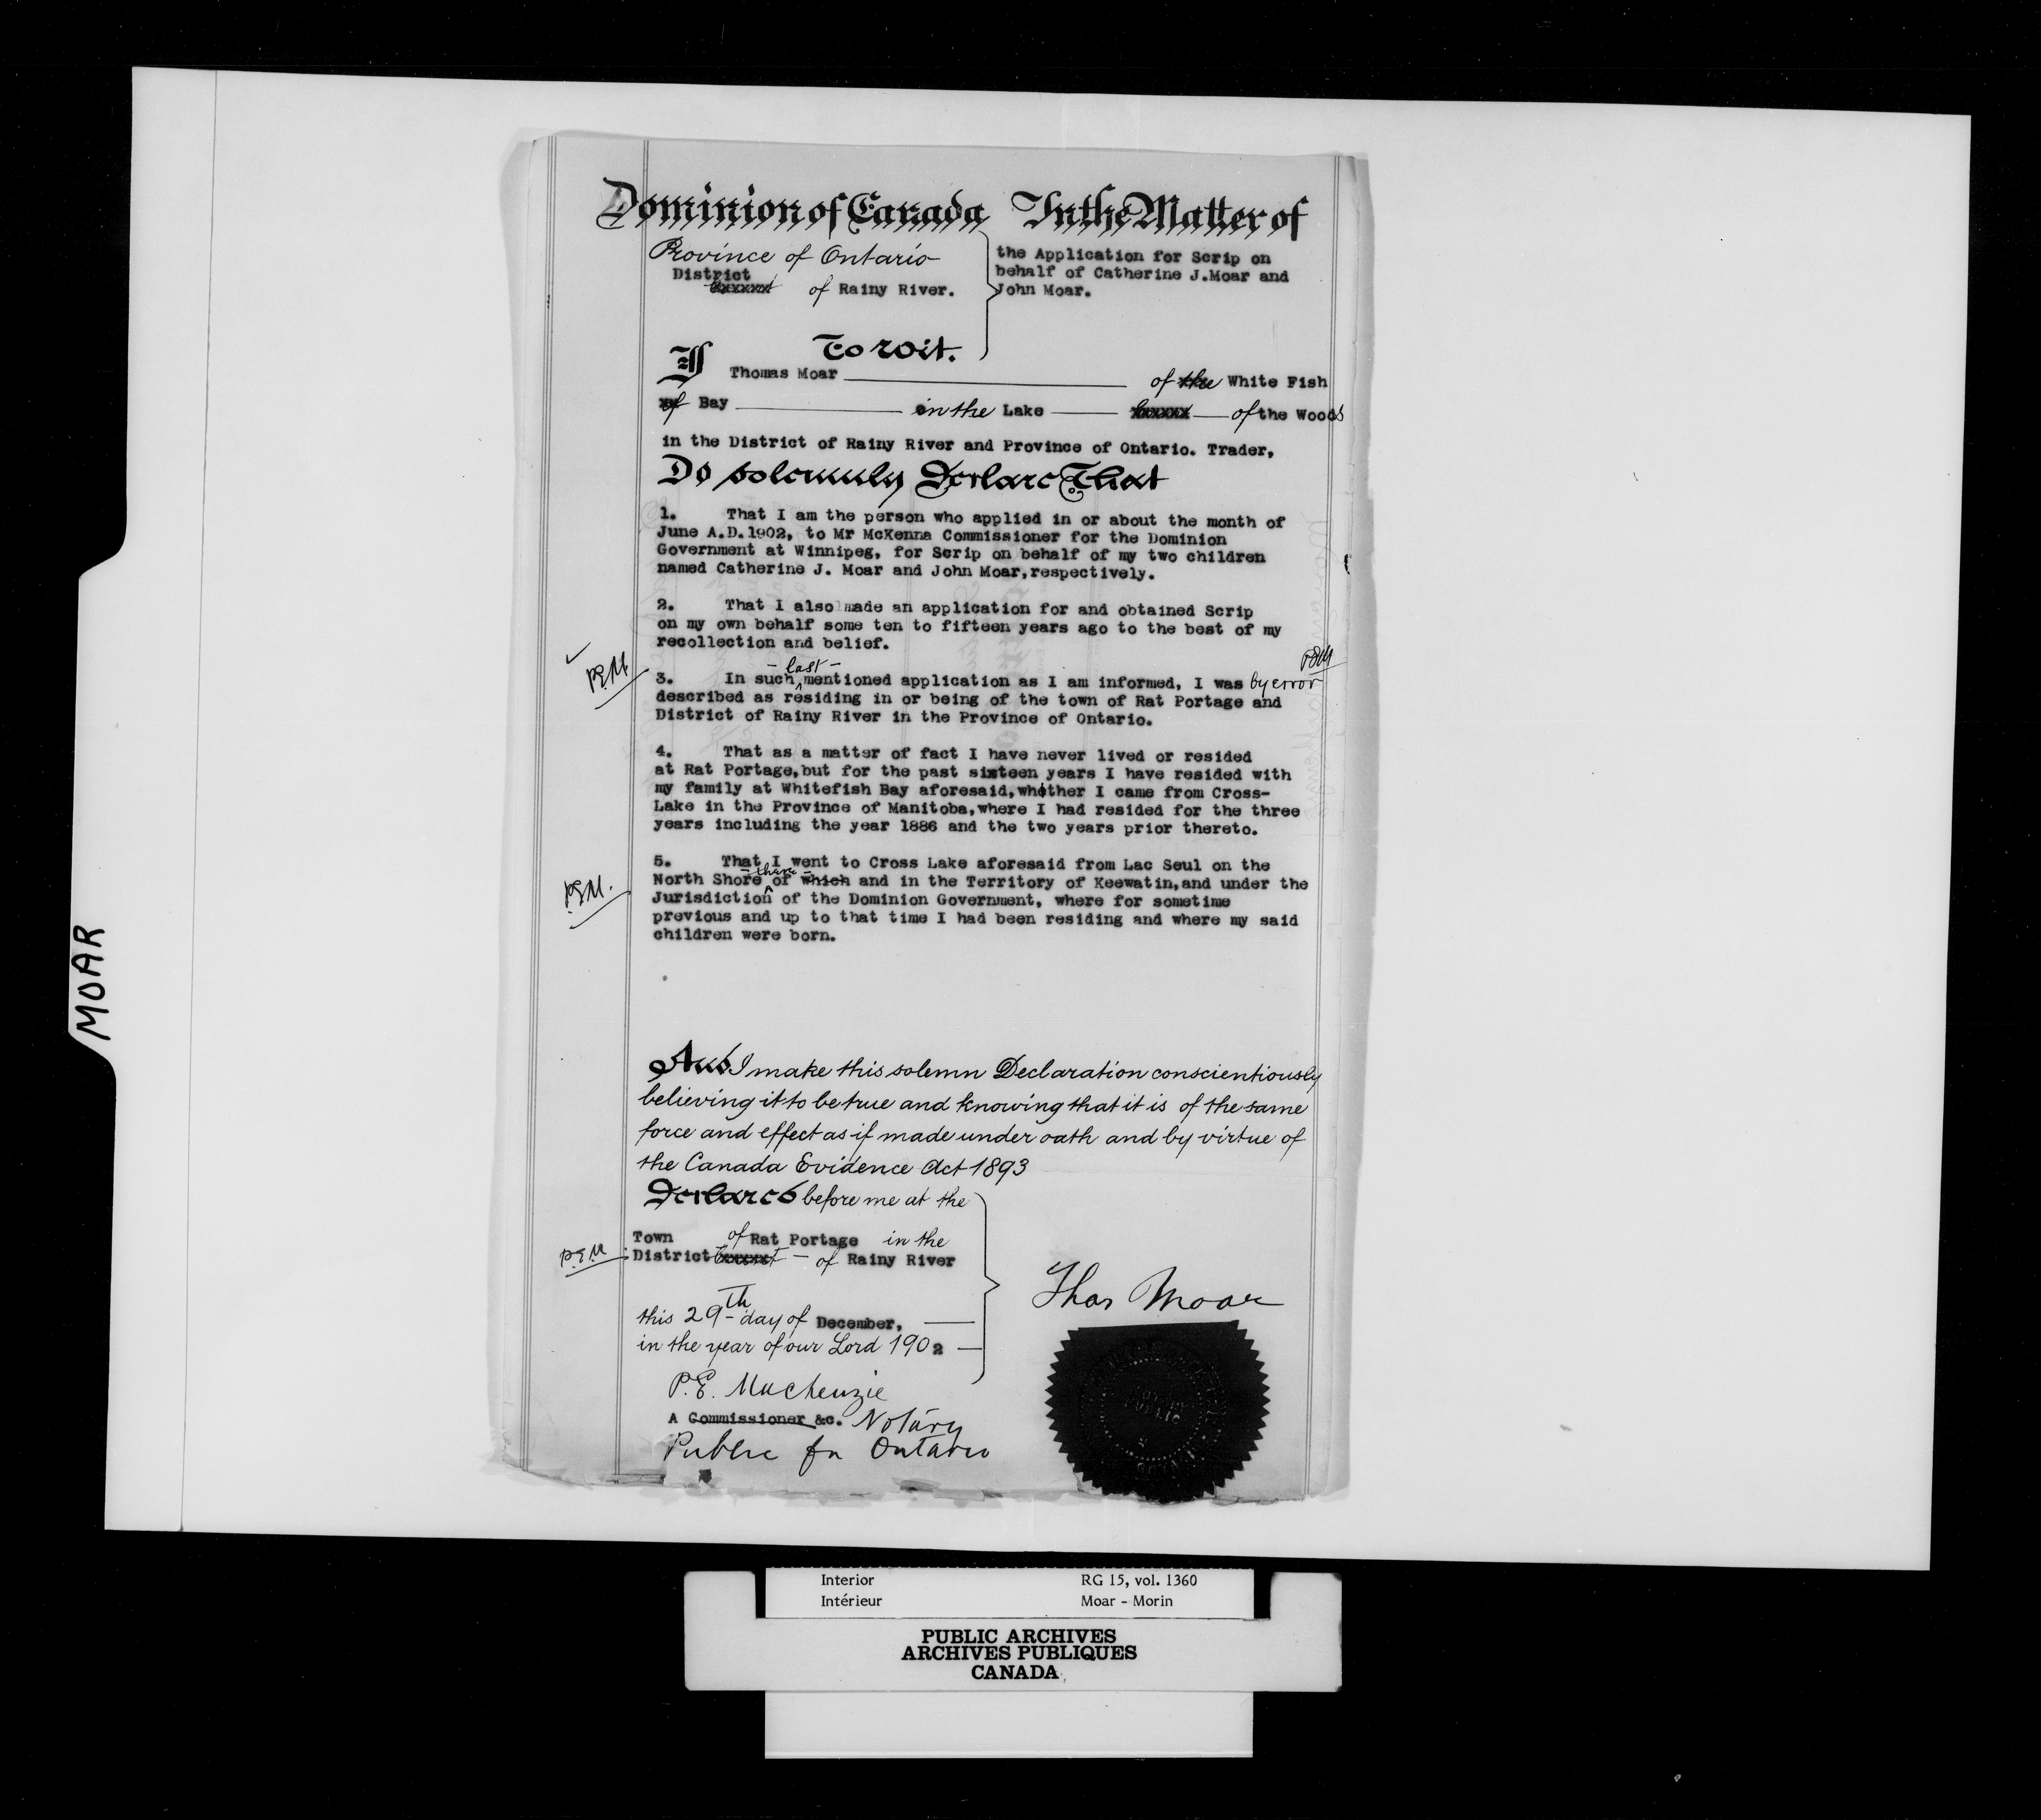 Dominion of Canada In the Matter of
Province of Ontario
District of Rainy River.
the Application for Scrip on
behalf of Catherine J.Moar and
John Moar.
To Wit.
I Thomas Moar of the White Fish
of Bay in the Lake of the Woods
in the District of Rainy River and Province of Ontario. Trader,
Do solemnly Declare That
1. That I am the person who applied in or about the month of
June A.D.1902, to Mr McKenna Commissioner for the Dominion
Government at Winnipeg, for Scrip on behalf of my two children
named Catherine J. Moar and John Moar,respectively.
2. That I also made an application for and obtained Scrip
on my own behalf some ten to fifteen years ago to the best of my
recollection and belief.
P.E.M.
- last -
P.E.M
3. In such mentioned application as I am informed, I was by error
described as residing in or being of the town of Rat Portage and
District of Rainy River in the Province of Ontario.
4. That as a matter of fact I have never lived or resided
at Rat Portage,but for the past sixteen years I have resided with
my family at Whitefish Bay aforesaid,whether I came from Cross-
Lake in the Province of Manitoba,where I had resided for the three
years including the year 1886 and the two years prior thereto.
5. That I went to Cross Lake aforesaid from Lac Seul on the
P.E.M.
North Shore of which and in the Territory of Keewatin,and under the
Jurisdiction of the Dominion Government, where for sometime
previous and up to that time I had been residing and where my said
children were born.
And I make this solemn Declaration conscientiously
believing it to be true and knowing that it is of the same
force and effect as if made under oath and by virtue of
the Canada Evidence Act 1893
Declared before me at the
Town of Rat Portage in the
P.E.M
District of Rainy River
this 29th day of December,
in the year of our Lord 1902
Thos Moar
P.E. Mackenzie
A Commissioner &c. Notary
Public for Ontario
MOAR
Interior RG 15, vol. 1360
Intérieur Moar - Morin
PUBLIC ARCHIVES
ARCHIVES PUBLIQUES
CANADA